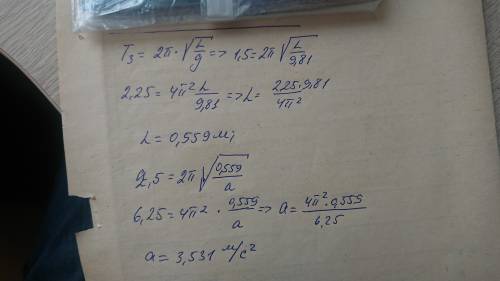 T₃ = 2π·√(L/g) => 1,5 = 2π√(L/9,81)
2,25 = 4π² L/9,81 => L = 2,25·9,81/4π²
L = 0,559 м;
2,5 = 2π√(0,559/a)
6,25 = 4π² · 0,559/a => a = 4π²·0,559/6,25
a = 3,531 м/с²